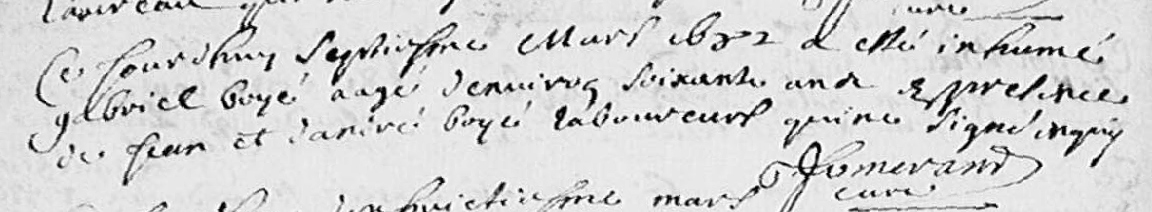 Ce Jourdhuy septiesme Mars 1692 a esté inhumé
gabriel boyé aagé denviron soixante ans Es presence
de jean et dandré boyé laboureurs qui ne signé enquis
Pomerand
curé
mars
curé